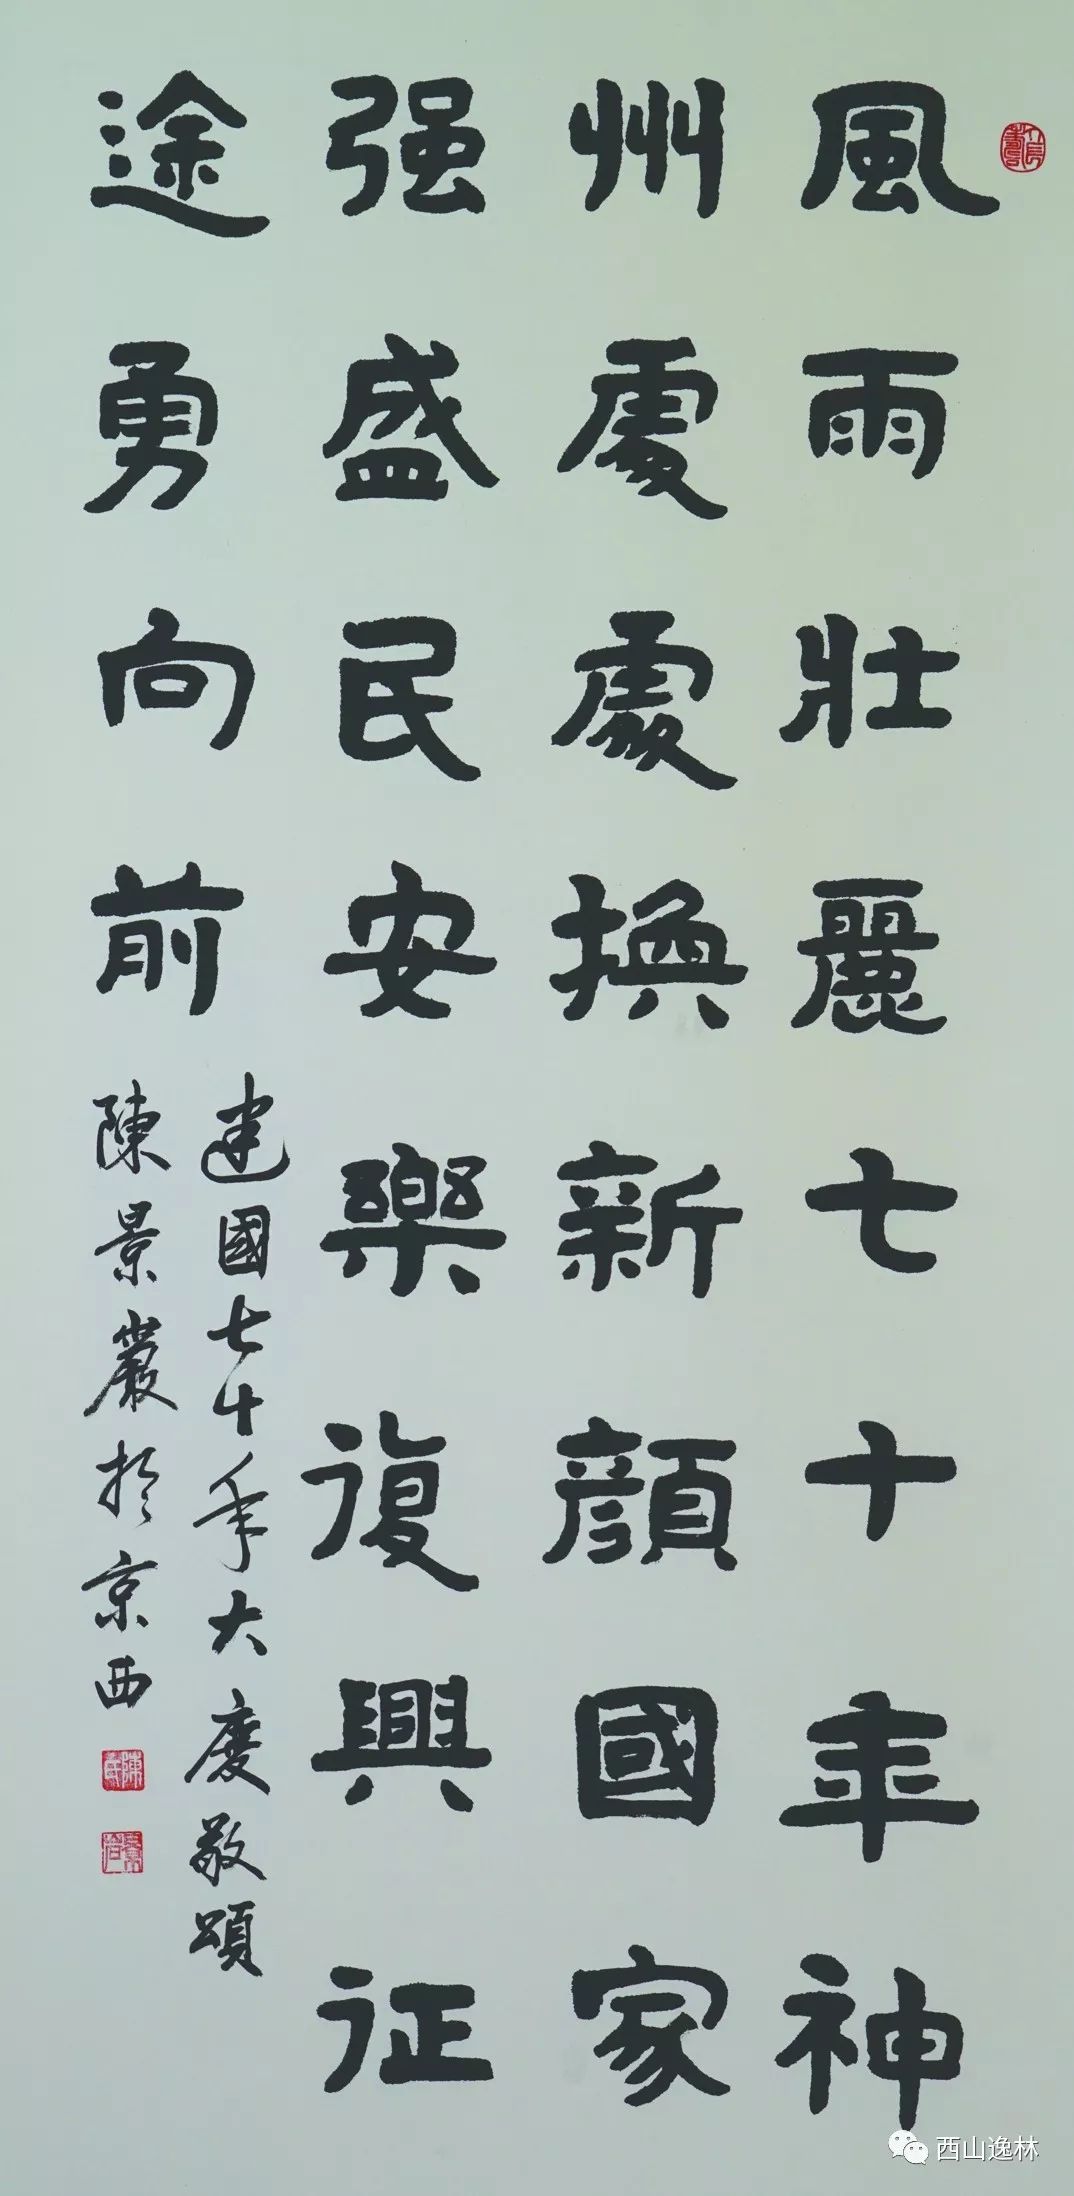 風雨壯麗七十年神
州處處換新顔國家
强盛民安樂復興征
途勇向前
建國七十年大慶敬頌
陳景巖於京西
西山逸林